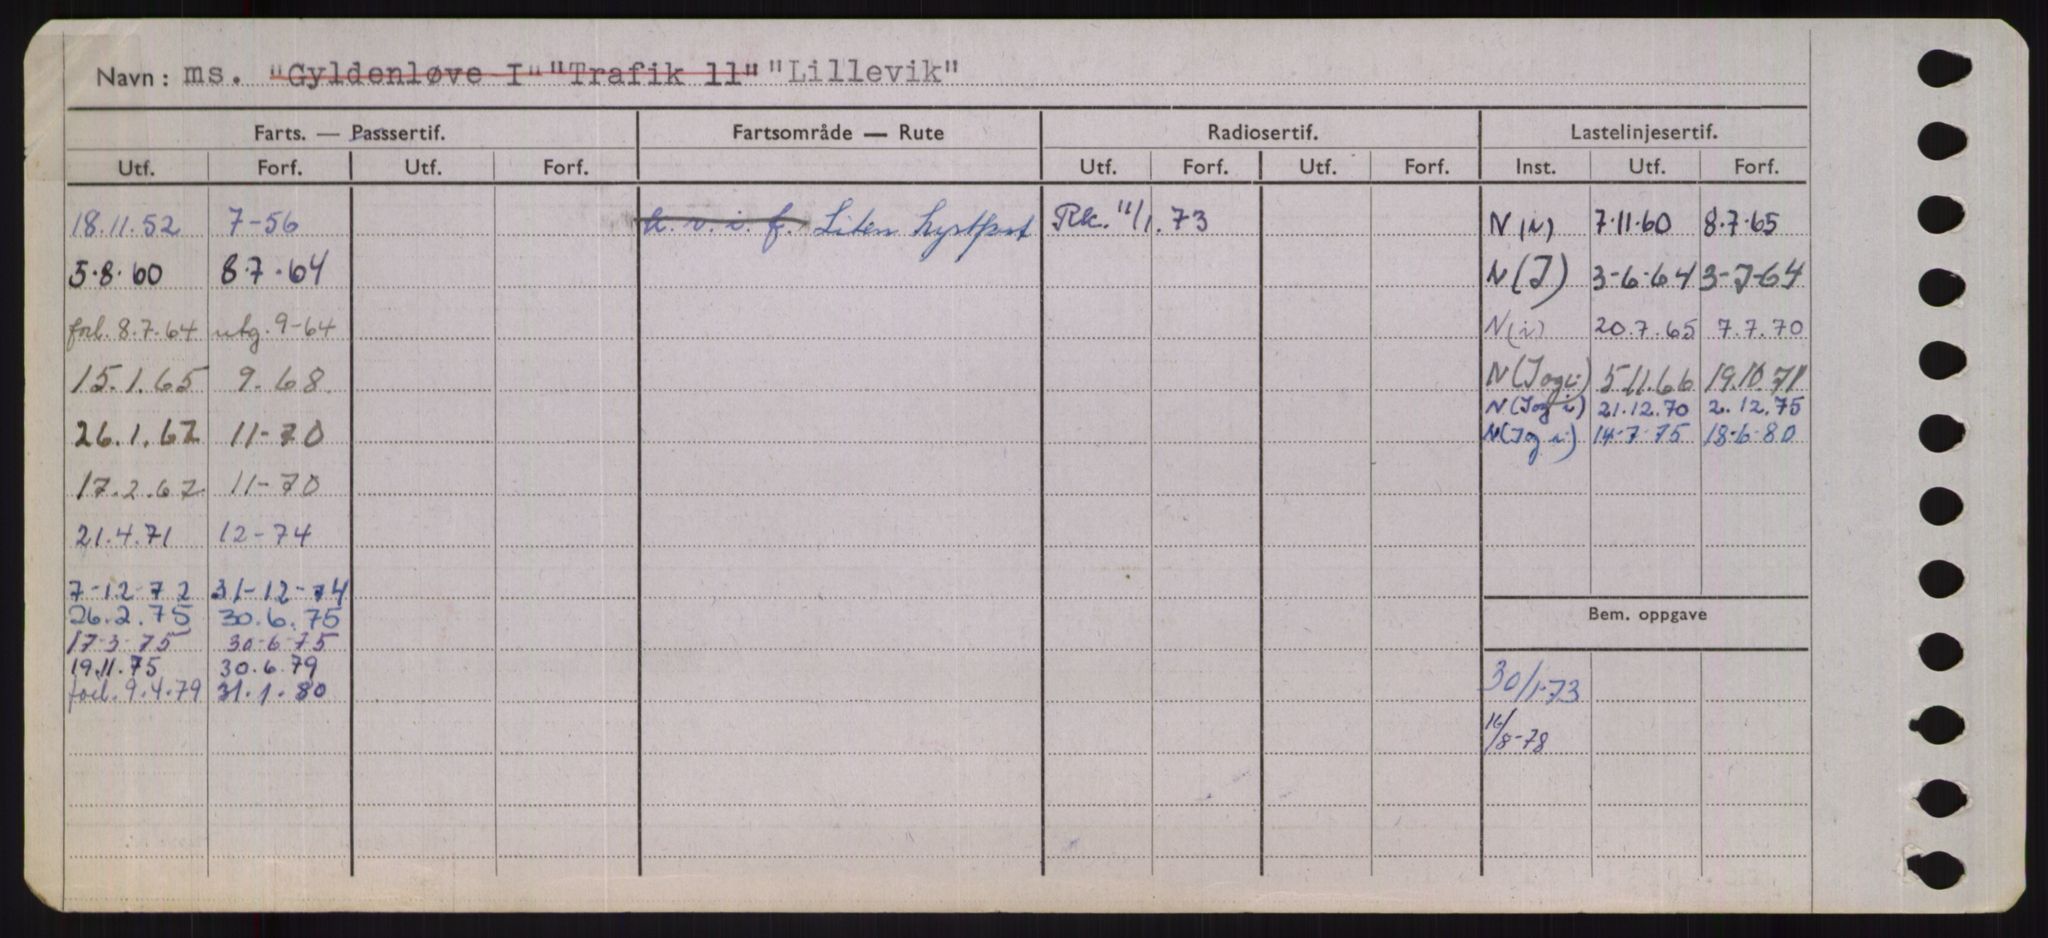 Navn: ms. "Gyldenløve I" "Trafik 11" "Lillevik"
Farts. — Passsertif. Fartsområde — Rute Radiosertif. Lastelinjesertif.
Utf. Forf. Utf. Forf. Utf. Forf. Utf. Forf. Inst. Utf. Forf.
18.11.52 7-56 k.v.i.f. Liten kystfart Rk. 11/1.73 N(i) 7.11.60 8.7.65
5.8.60 8.7.64 N(I) 3-6-64 3-7-64
forl. 8.7.64 utg. 9-64 N(i) 20.7.65 7.7.70
15.1.65 9.68 N(I og i) 5.11.66 19.10.71
N(I og i) 21.12.70 2.12.75
26.1.67 11-70 N(I og i) 14-7-75 18-6-80
17.2.67 11-70
21.4.71 12-74
7-12-72 31-12-74
26.2.75 30.6.75 Bem. oppgave
17-3-75 30-6-75
19.11.75 30.6.79 30/1-73
forl. 9.4.79 31.1.80
16/8-78